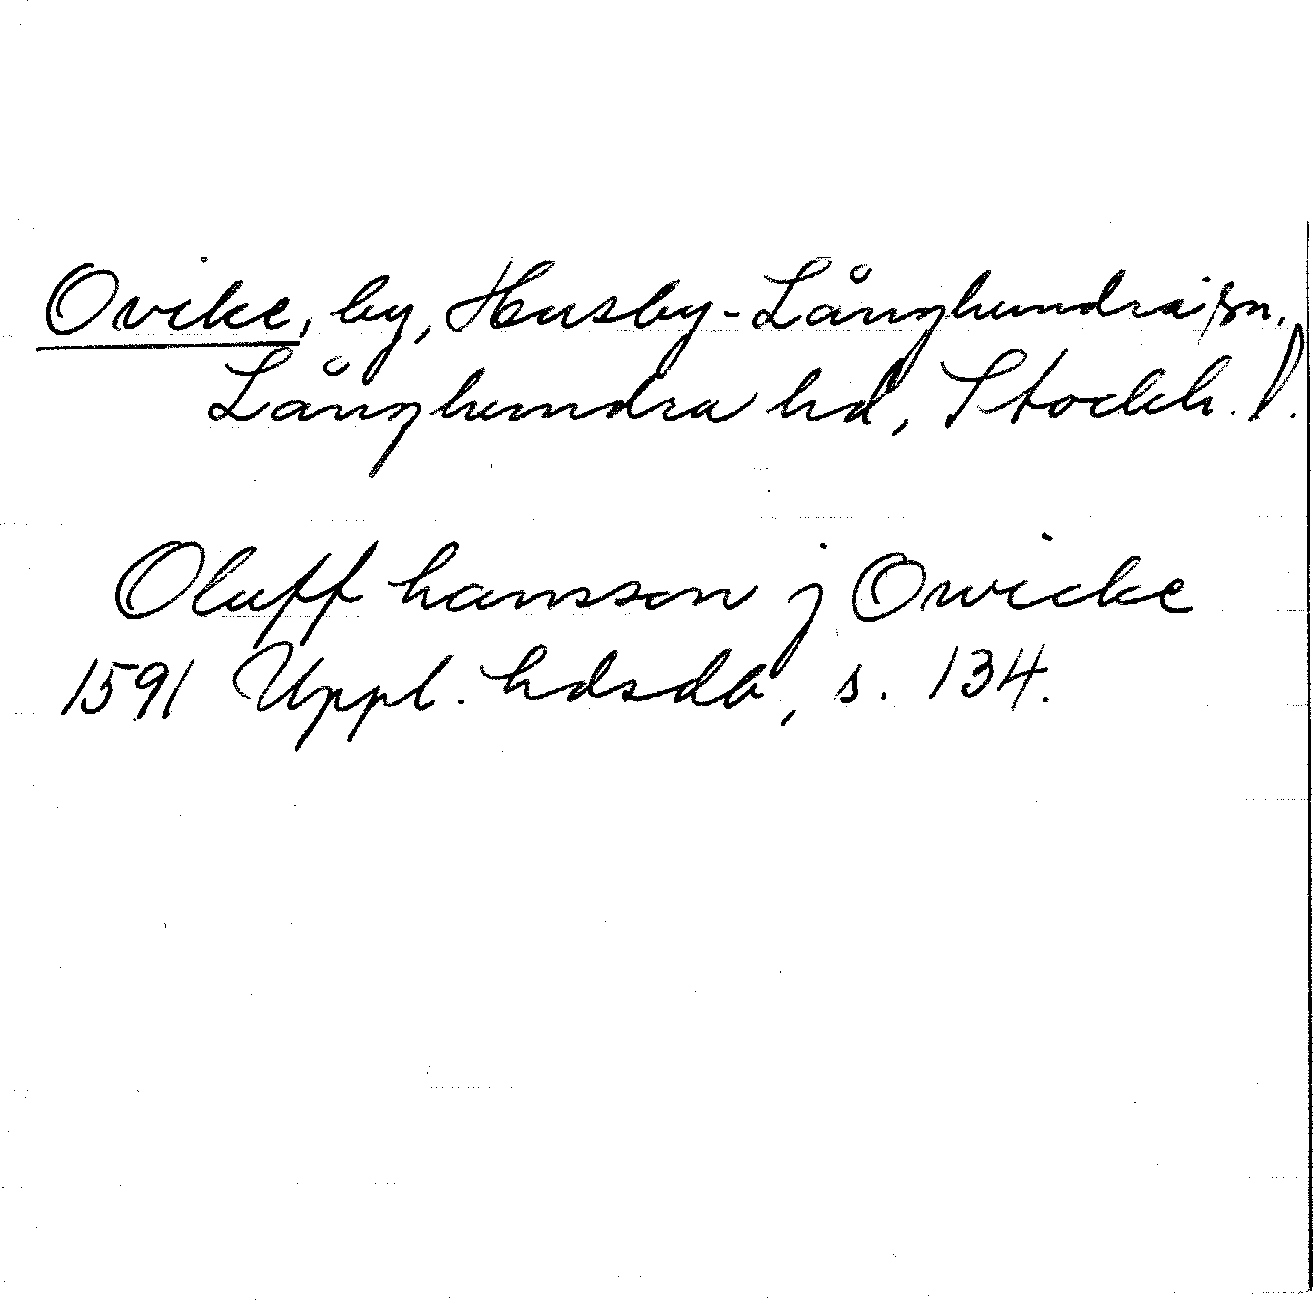 Ovike, by, Husby-Långhundra sn.,
Långhundra hd, Stockh. l.
Oluff hansson j Owicke
1591 Uppl. hdsdb, s. 134.